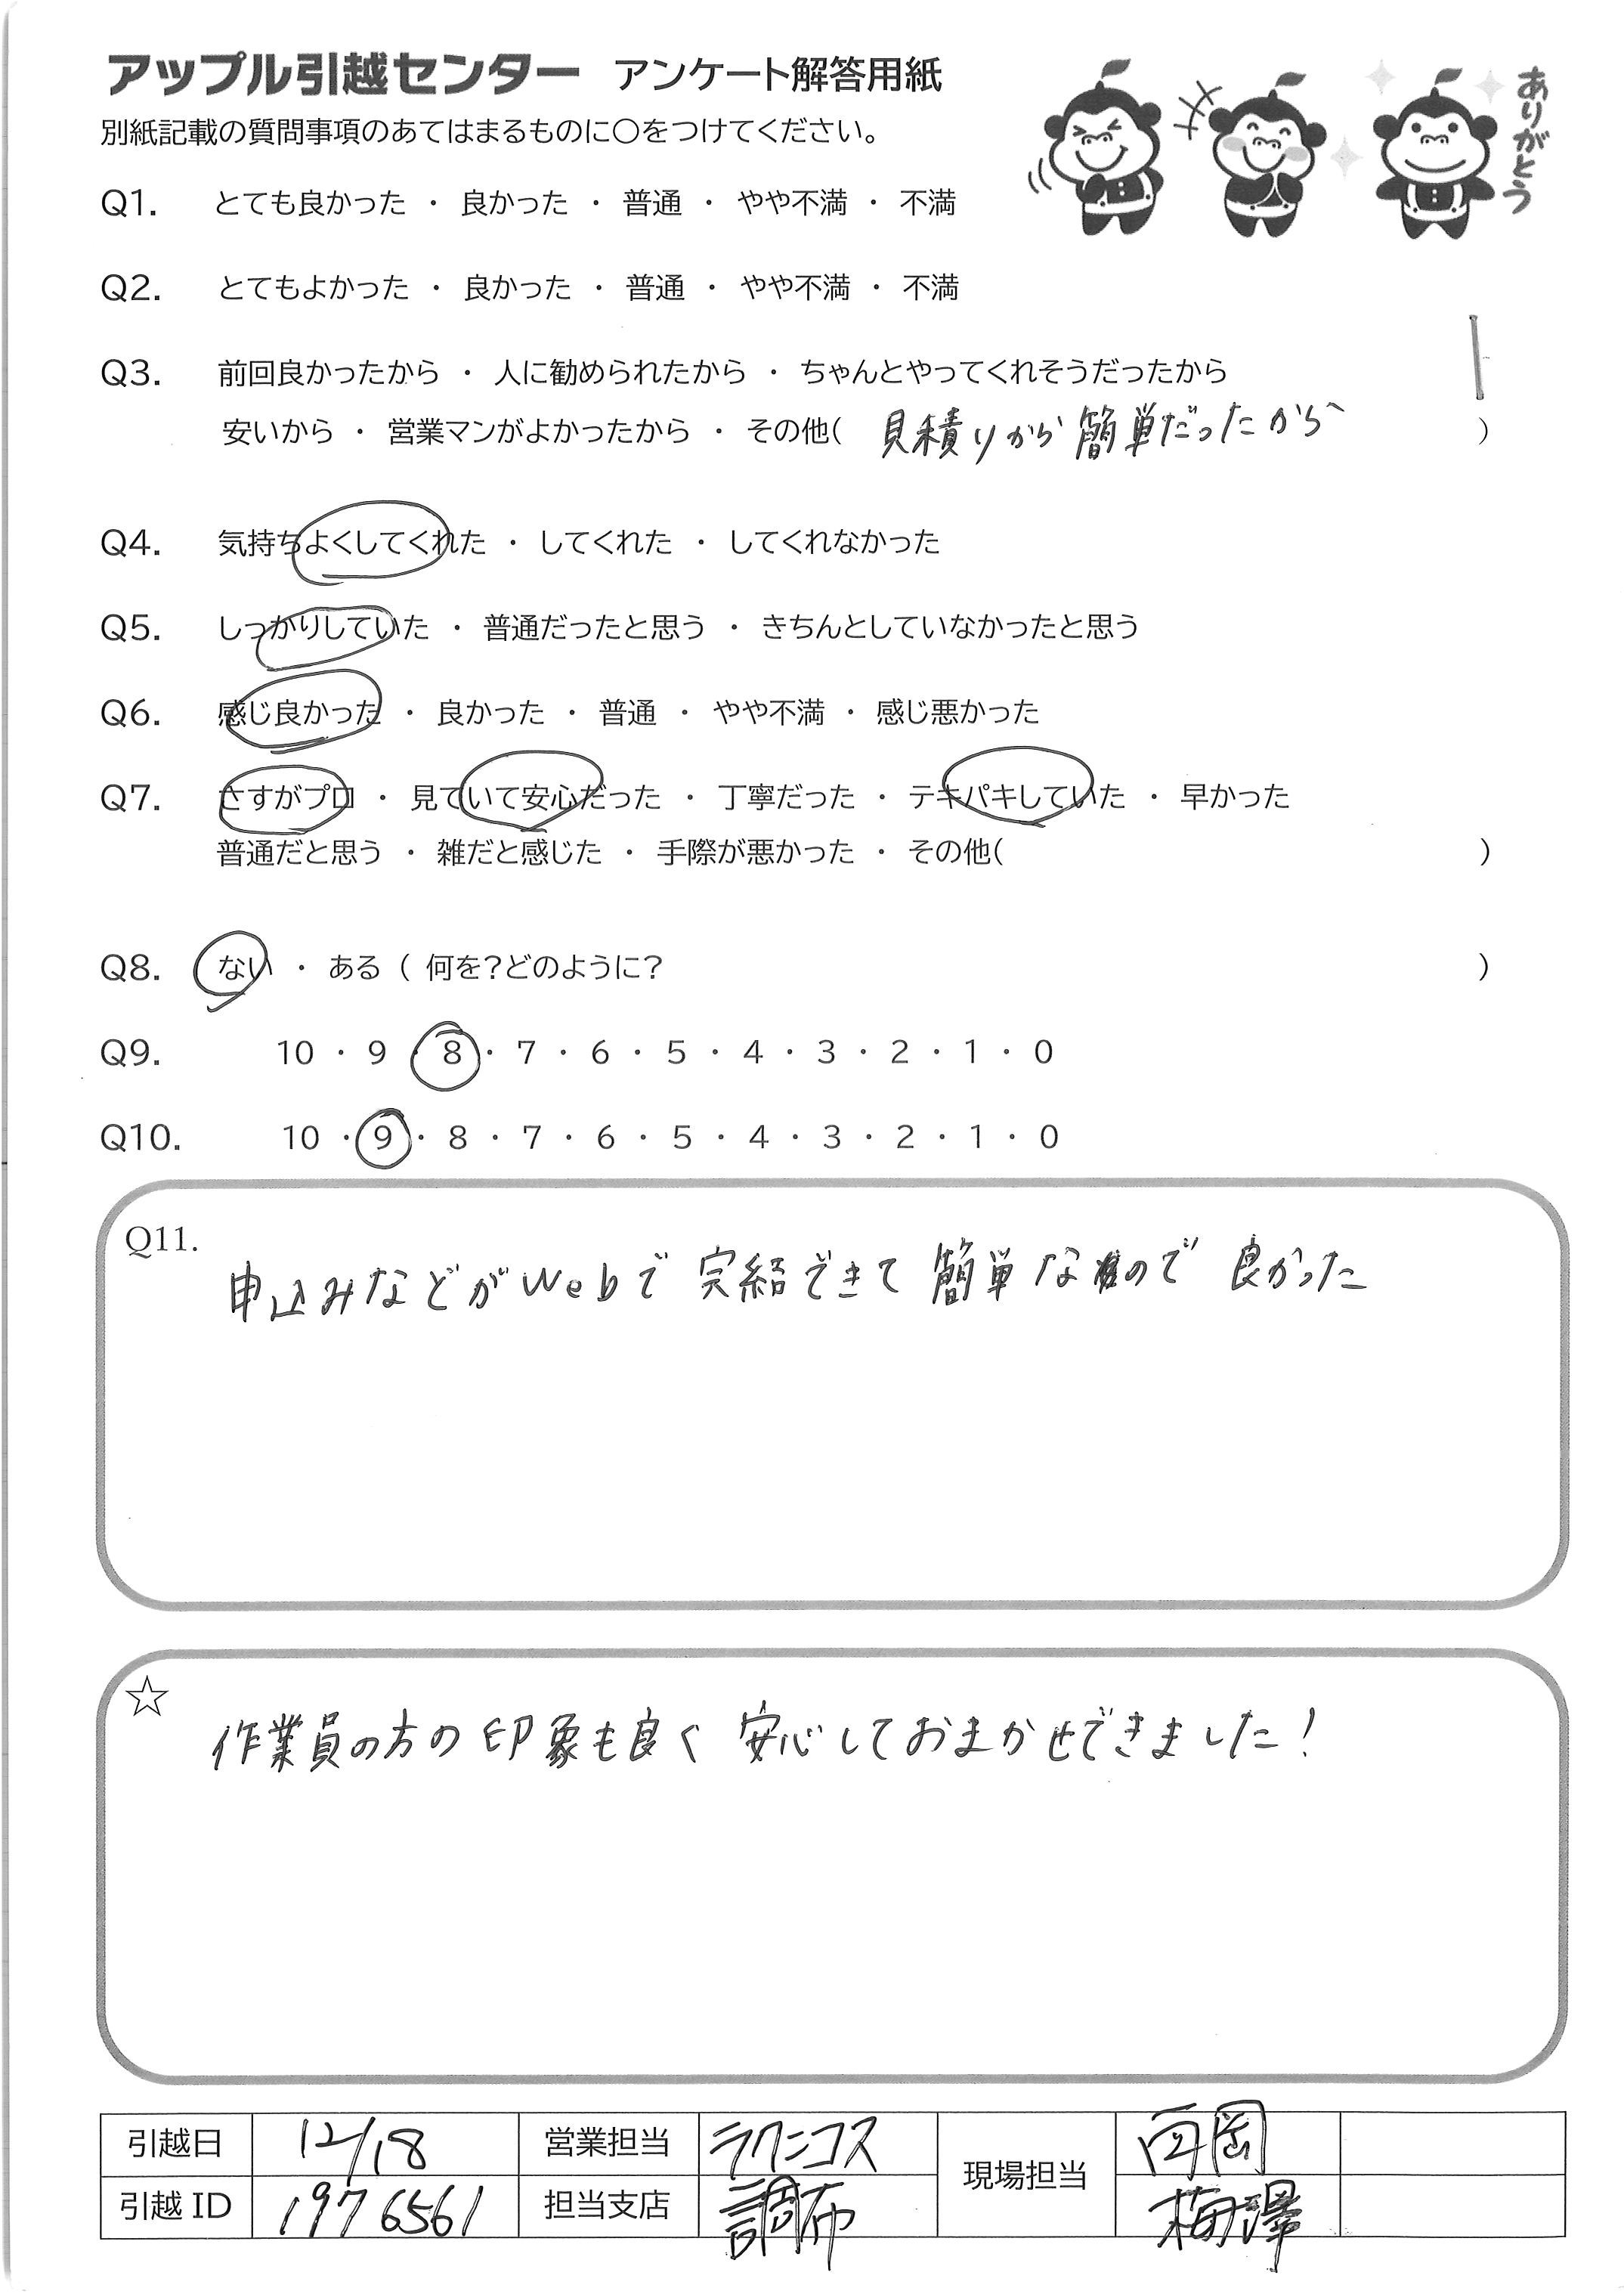 アップル引越センター アンケート解答用紙
ありがとう
別紙記載の質問事項のあてはまるものに〇をつけてください。
Q1. とても良かった ・ 良かった ・ 普通 ・ やや不満 ・ 不満
Q2. とてもよかった ・ 良かった ・ 普通 ・ やや不満 ・ 不満
Q3. 前回良かったから ・ 人に勧められたから ・ ちゃんとやってくれそうだったから
安いから ・ 営業マンがよかったから ・ その他( 見積りから簡単だったから )
Q4. 気持ちよくしてくれた ・ してくれた ・ してくれなかった
Q5. しっかりしていた ・ 普通だったと思う ・ きちんとしていなかったと思う
Q6. 感じ良かった ・ 良かった ・ 普通 ・ やや不満 ・ 感じ悪かった
Q7. さすがプロ ・ 見ていて安心だった ・ 丁寧だった ・ テキパキしていた ・ 早かった
普通だと思う ・ 雑だと感じた ・ 手際が悪かった ・ その他( )
Q8. ない ・ ある ( 何を?どのように? )
Q9. 10 ・ 9 ・ 8 ・ 7 ・ 6 ・ 5 ・ 4 ・ 3 ・ 2 ・ 1 ・ 0
Q10. 10 ・ 9 ・ 8 ・ 7 ・ 6 ・ 5 ・ 4 ・ 3 ・ 2 ・ 1 ・ 0
Q11.
申込みなどがWebで完結できて簡単なので良かった
☆
作業員の方の印象も良く安心しておまかせできました!
引越日 12/18 営業担当 ラクニコス 現場担当 西岡
引越ID 1976561 担当支店 調布 梅澤